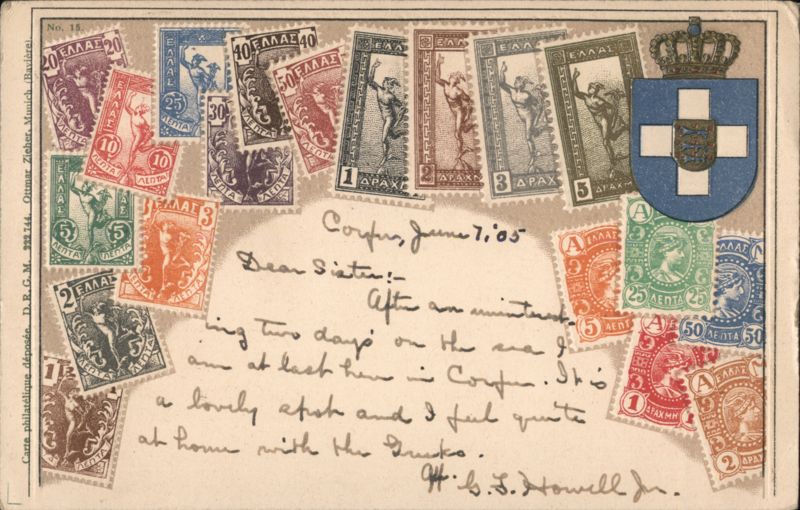 No. 15.
Carte philatélique déposée. D. R. G. M. 222 744. Ottmar Zieher, Munich. (Bavière).
20 ΕΛΛΑΣ 20
ΛΕΠΤΑ
ΕΛΛΑΣ
10 10
ΛΕΠΤΑ
ΕΛΛΑΣ
25
ΛΕΠΤΑ
40 ΕΛΛΑΣ 40
30
ΛΕΠΤΑ
50 ΕΛΛΑΣ
ΛΕΠΤΑ
ΕΛΛΑΣ
1 ΔΡΑΧ
ΕΛΛΑΣ
2 ΔΡΑΧ
ΕΛΛΑΣ
3 ΔΡΑΧΜ
ΕΛΛΑΣ
5 ΔΡΑΧΜΑΙ
ΕΛΛΑΣ
5 5
ΛΕΠΤΑ
ΕΛΛΑΣ 3
ΛΕΠΤΑ
2 ΕΛΛΑΣ
ΛΕΠΤΑ
1 ΕΛΛΑΣ
ΛΕΠΤΑ
Α ΕΛΛΑΣ
5 ΛΕΠΤΑ
Α ΕΛΛΑΣ
25 ΛΕΠΤΑ 25
ΕΛΛΑΣ
50 ΛΕΠΤΑ 50
Α
1 ΔΡΑΧΜΗ
Α ΕΛΛΑΣ
2 ΔΡΑΧ
Corfu, June 7, '05
Dear Sister:-
After an uninterest-
ing two days on the sea I
am at last here in Corfu. It is
a lovely spot and I feel quite
at home with the Greeks.
G. L. Howell Jr.